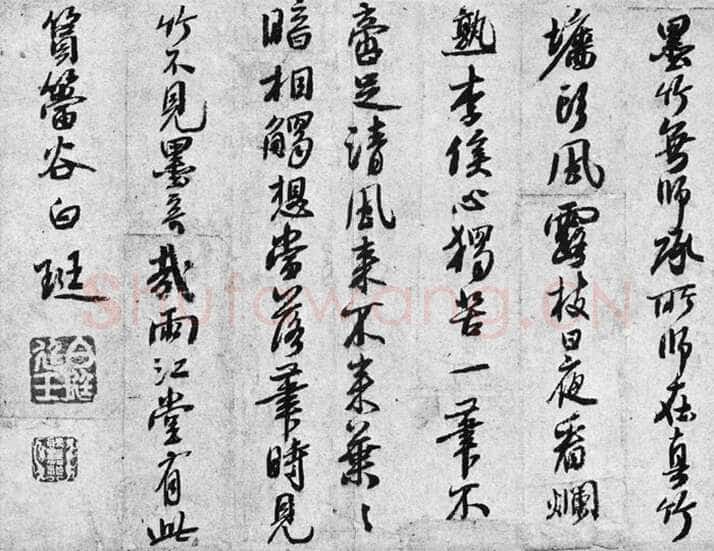 墨竹無師承所師在真竹
墻頭風露枝日夜看爛
熟李侯心獨苦一筆不
啻足清風來不來葉〻
暗相觸想當落筆時見
竹不見墨奇哉兩江堂有此
篔簹谷白珽
Shufawang.CN